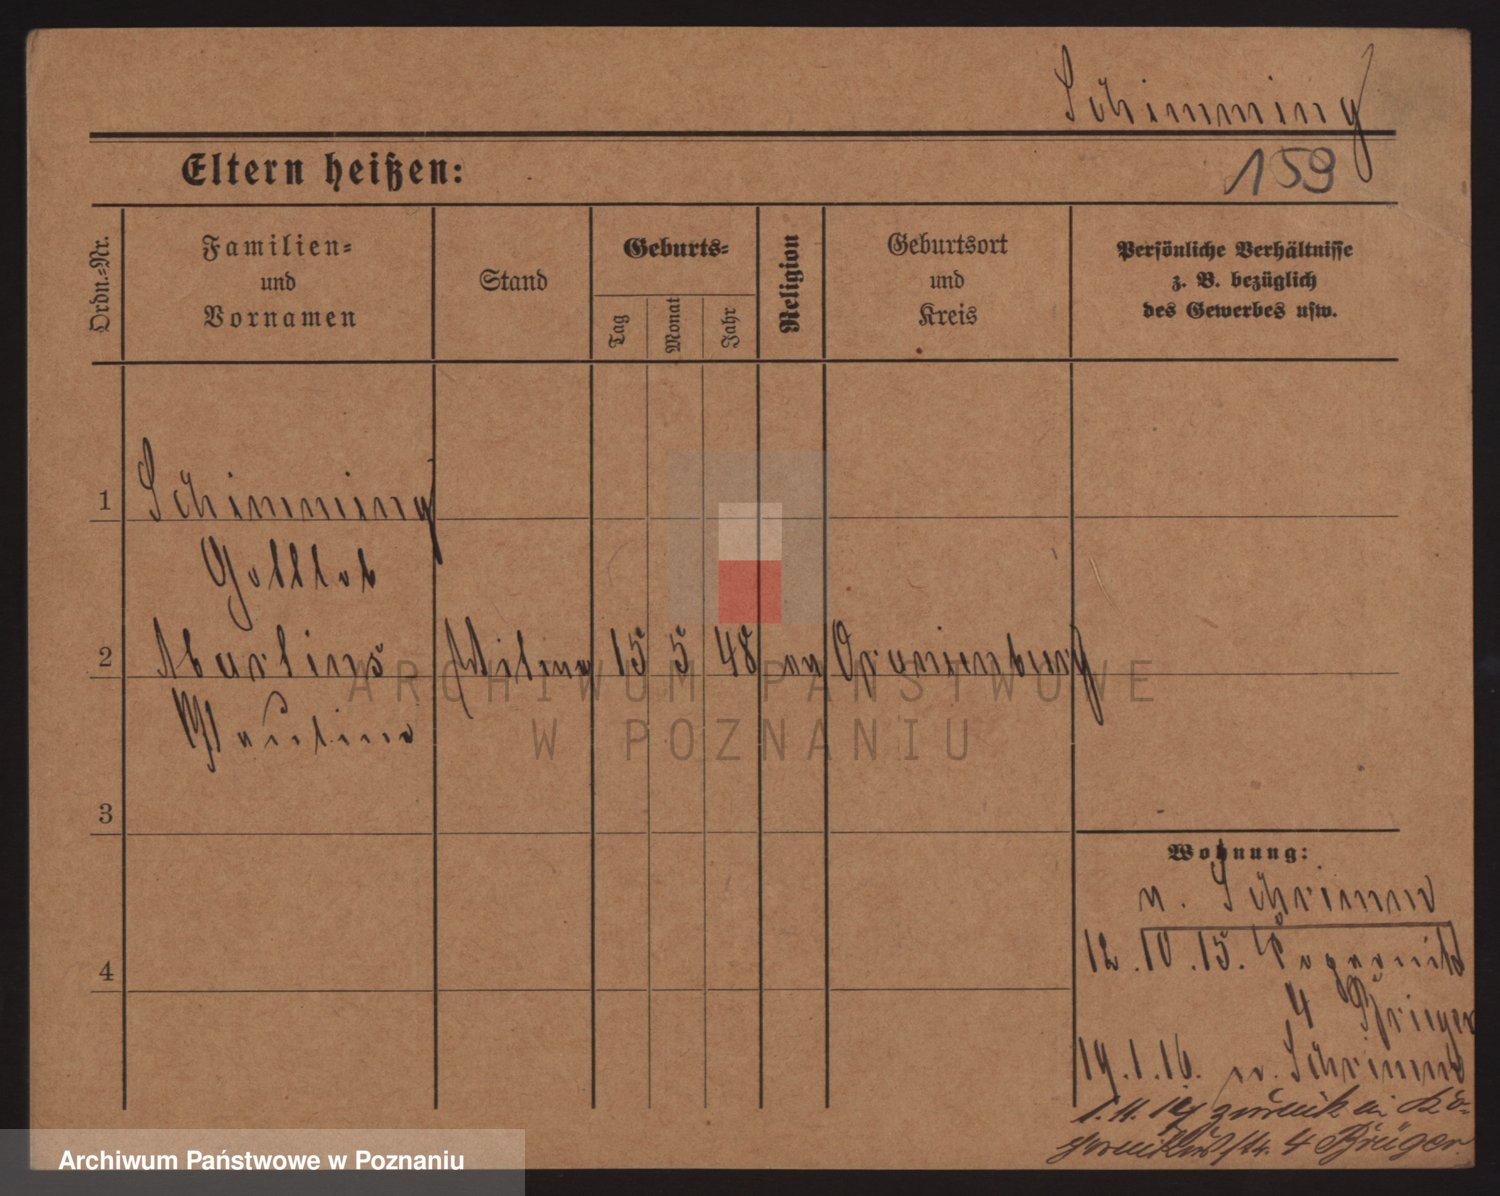 Schimming
159
Eltern heißen:
Ordn.-Nr.
Familien-
und
Vornamen
Stand
Geburts-
Tag
Monat
Jahr
Religion
Geburtsort
und
Kreis
Persönliche Verhältnisse
z. B. bezüglich
des Gewerbes usw.
1 Schimming
Gottlob
2 15 5 48 Oranienburg
Pauline
3
4
ARCHIWUM PAŃSTWOWE
W POZNANIU
Wohnung:
n. Schrimm
12.10.15.
4 Krüger
19.1.16. n. Schrimm
zurück in
4 Krüger
Archiwum Państwowe w Poznaniu